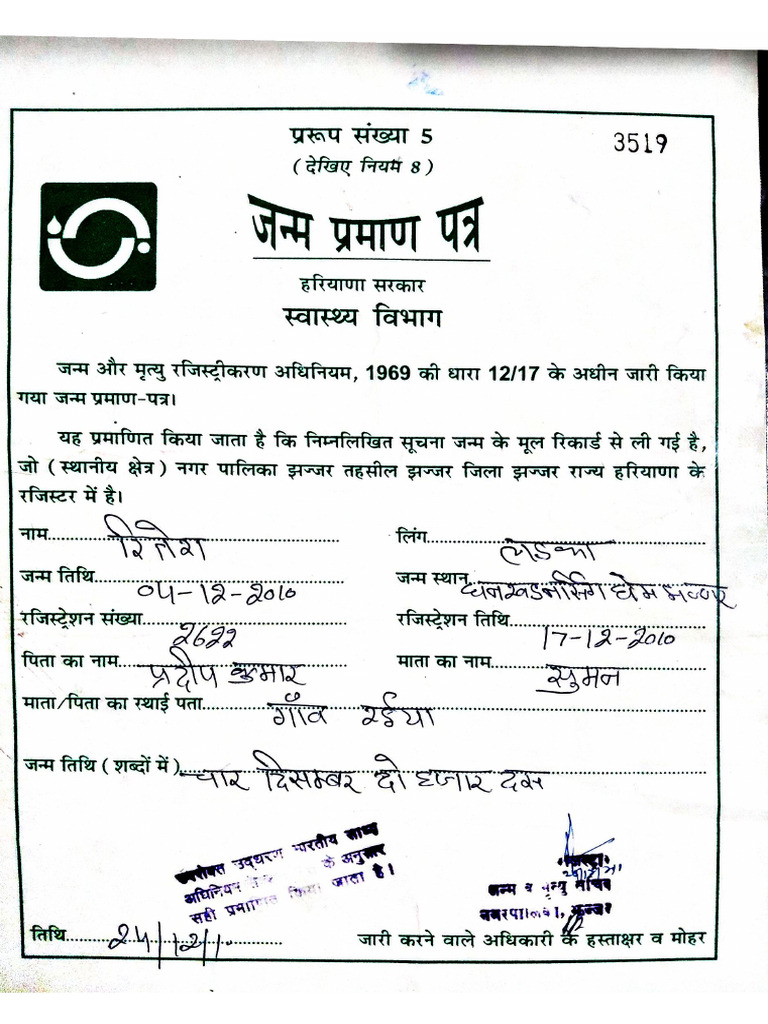 प्ररूप संख्या 5
3519
( देखिए नियम 8 )
जन्म प्रमाण पत्र
हरियाणा सरकार
स्वास्थ्य विभाग
जन्म और मृत्यु रजिस्ट्रीकरण अधिनियम, 1969 की धारा 12/17 के अधीन जारी किया
गया जन्म प्रमाण-पत्र।
यह प्रमाणित किया जाता है कि निम्नलिखित सूचना जन्म के मूल रिकार्ड से ली गई है,
जो ( स्थानीय क्षेत्र ) नगर पालिका झज्जर तहसील झज्जर जिला झज्जर राज्य हरियाणा के
रजिस्टर में है।
नाम रितेश लिंग लड़का
जन्म तिथि 04-12-2010 जन्म स्थान धनखड नर्सिंग होम झज्जर
रजिस्ट्रेशन संख्या 2622 रजिस्ट्रेशन तिथि 17-12-2010
पिता का नाम प्रदीप कुमार माता का नाम सुमन
माता/पिता का स्थाई पता गाँव रईया
जन्म तिथि ( शब्दों में ) चार दिसम्बर दो हजार दस
उपरोक्त उद्धरण भारतीय साक्ष्य
अधिनियम के अनुसार
सही प्रमाणित किया जाता है।
जन्म व मृत्यु
नगरपालिका, झज्जर
तिथि 24/12/10 जारी करने वाले अधिकारी के हस्ताक्षर व मोहर